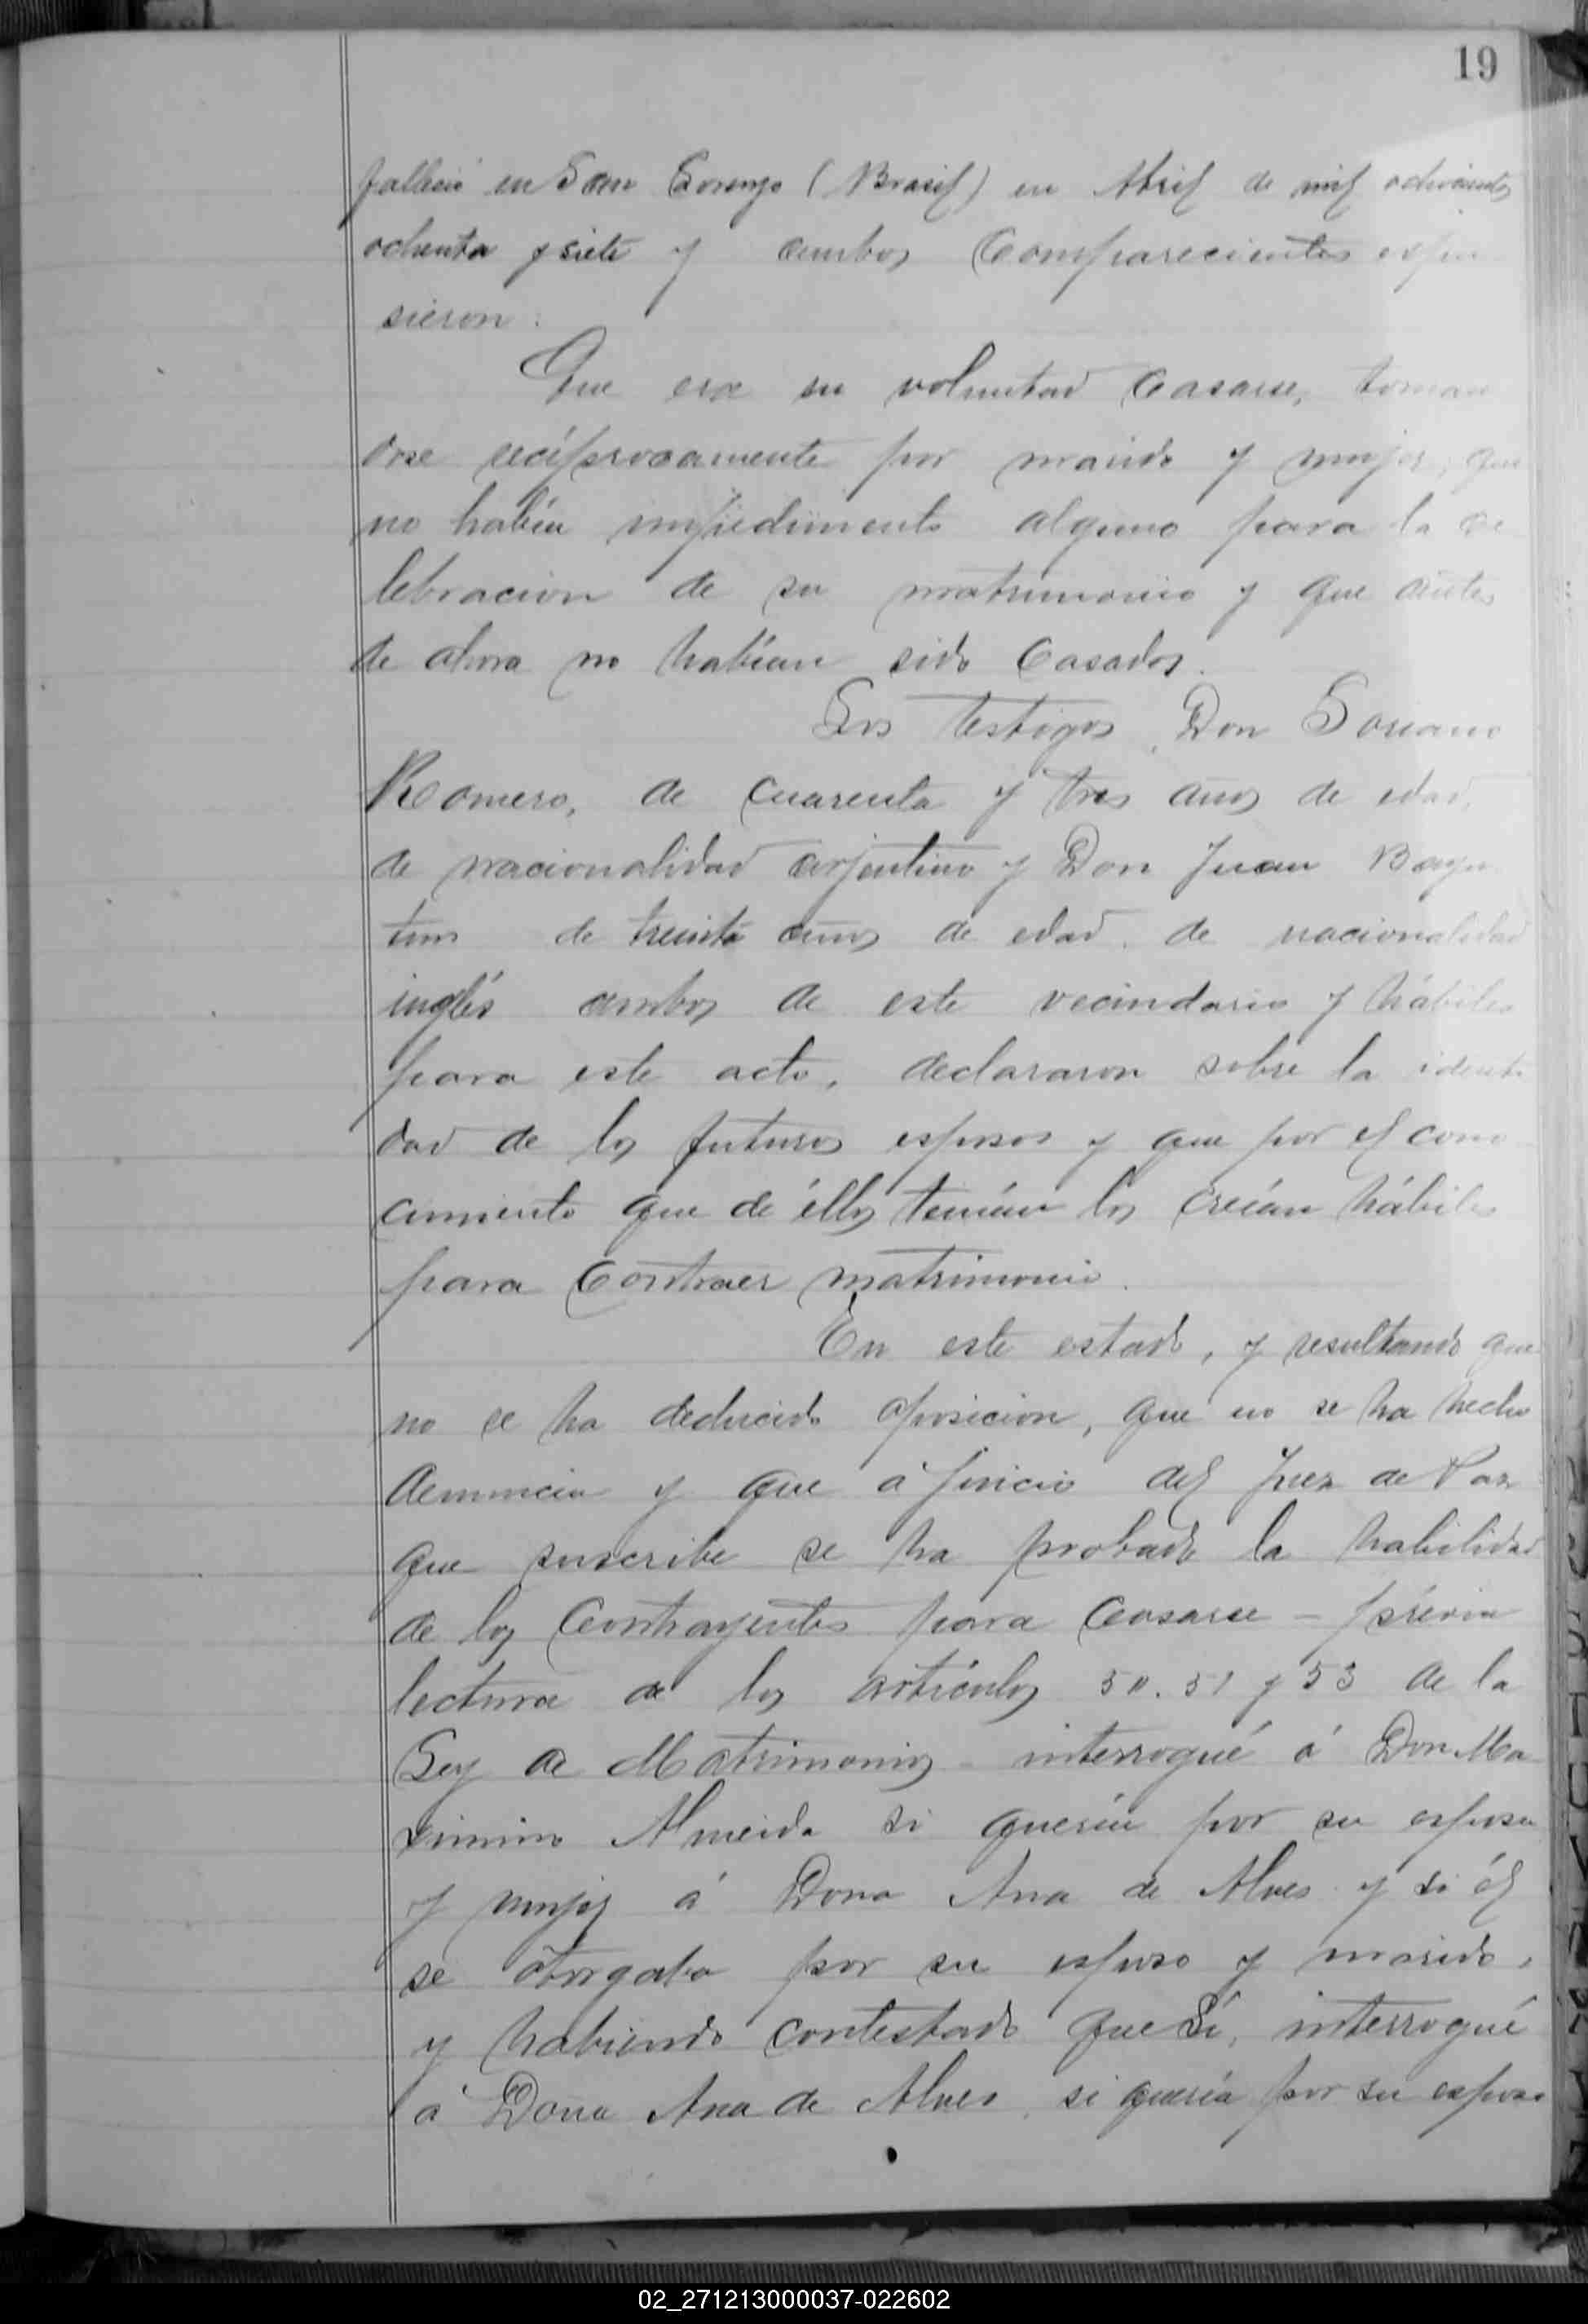 19
falleció en San Lorenzo (Brasil) en Abril de mil ochocientos
ochenta y siete y ambos Comparecientes expu
sieron:
Que era su voluntad Casarse, toman
dose recíprocamente por marido y mujer, que
no había impedimento alguno para la ce
lebracion de su matrimonio y que antes
de ahora no habían sido Casados.
Los testigos, Don Soriano
Romero, de cuarenta y tres años de edad,
de nacionalidad arjentino y Don Juan
de treinta años de edad, de nacionalidad
inglés ambos de este vecindario y hábiles
para este acto, declararon sobre la identi
dad de los futuros esposos y que por el cono
cimiento que de éllos tenían los creían hábiles
para Contraer matrimonio.
En este estado, y resultando que
no se ha deducido oposicion, que no se ha hecho
denuncia y que á juicio del Juez de Paz
que suscribe se ha probado la habilidad
de los Contrayentes para Casarse – prévia
lectura de los artículos 50. 51 y 53 de la
Ley de Matrimonios – interrogué á Don Ma
ximino Almeida si quería por su esposa
y mujer á Dona Ana de Alves y si él
se otorgaba por su esposo y marido,
y habiendo contestado que Sí, interrogué
á Dona Ana de Alves, si quería por su esposo
02_271213000037-022602